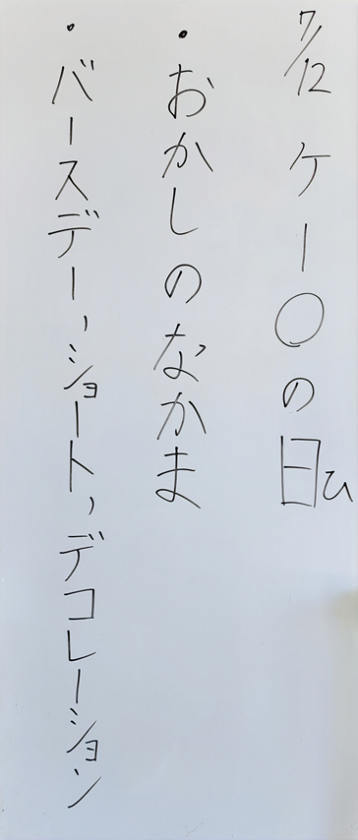 7/12 ケー○の日ひ
・おかしのなかま
・バースデー、ショート、デコレーション